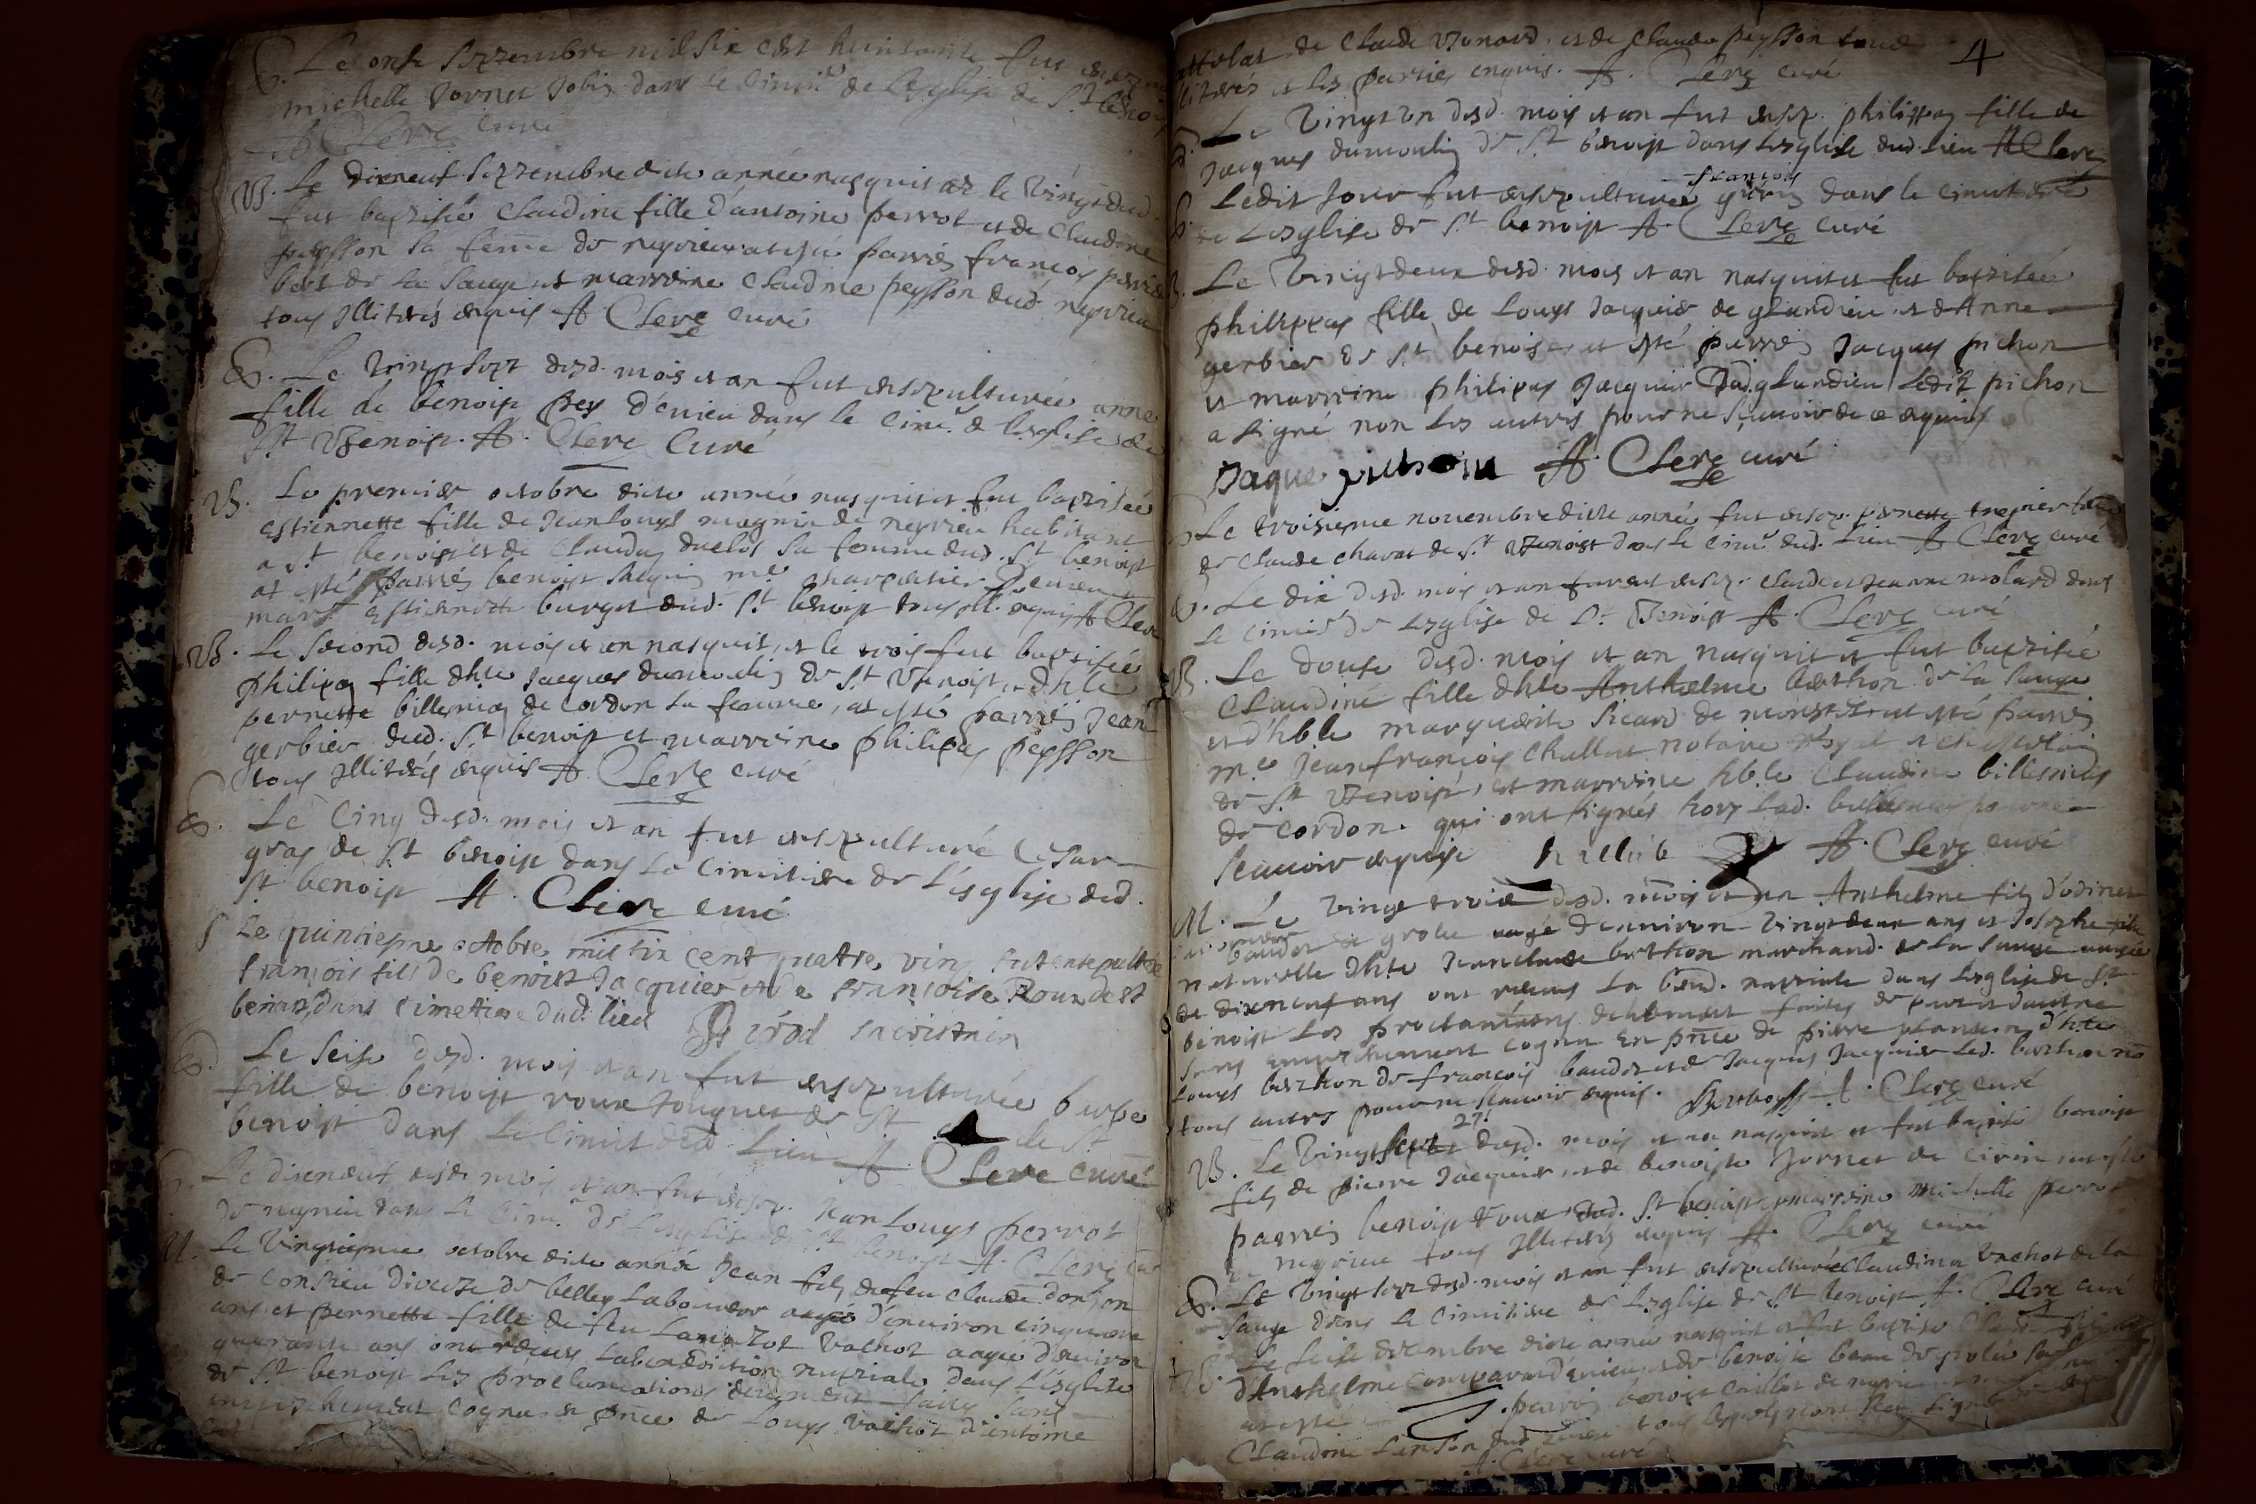 Le onse septembre mil six cent huictante fut
michelle Jornet Jobin dans le cimit de Leglise de St benoist
A Clerc curé
B. Le dixneuf septembre dicte année nasquit et le vingt dud.
fut baptisée Claudine fille d'antoine perrot et de Claudine
peysson sa feme de neyrieu a esté parrin francois
de la sauge et marreine Claudine peysson dud. neyrieu
tous illiterés enquis A Clerc curé
Le vingt sept desd. mois et an fut ensepulturée anne
fille de benoist pey d'enieu dans le cim. de leglise de
St Benoist. A. Clerc Curé
B. Le premier octobre dicte année nasquit et fut baptisée
Estiennette fille de Jean Louys magnin de neyrieu habitant
a St benoist et de Clauda duclos sa femme dud. St benoist
at esté parrin benoist Jacquin me charpentier d'enieu et
marr. Estiennette burget dud. St benoist tous ill. enquis A Clerc
B. Le second desd. mois et an nasquit, et le trois fut baptisée
philipa fille dhte Jacques dumoulin de St Benoist et dhle
pernette billemia de Cordon sa femme, at esté parrin Jean
gerbier dud. St benoist et marreine philipa peysson
tous illiterés enquis A. Clerc curé
Le Cinq desd. mois et an fut ensepulturé Cesar
gras de St benoist dans Le Cimitiere de L'esglise dud.
St benoist A. Clerc curé
S Le quinsiesme octobre mil six cent quatre vin fut ensepulture
francois fils de benoist Jacquier et de francoise Roux de St
benoist dans Cimettiere dud. lieu sacristain
Le seise desd. mois et an fut ensepulturée
fille de benoist roux Jouguet de St
benoist dans Le Cimit dud. Lieu A. Clerc Curé
Le dixneuf desd. mois et an fut ensep. Jean Louys perrot
de neyrieu dans Le Cim. de Lesglise de St benoist A. Clerc
M. Le vingtiesme octobre dicte année Jean fils de feu Claude donjon
de Consieu diocese de belley laboureur aagé d'environ cinquante
ans et pernette fille de feu vathot aagée d'environ
quarante ans ont receus la benediction nuptiale dans L'esglise
de St benoist les proclamations deuement faites sans
empeschement cogneu en pnce de Louys vathot d'antoine
attolat de Claude Bonard et de Claude peysson tous 4
illiterés et les parties enquis. A. Clerc curé
Le vingt un desd. mois et an fut ensep. philippa fille de
Jacques dumoulin de St benoist dans Lesglise dud. lieu A Clerc
Ledit Jour fut ensepulturé francois dans le Cimitiere
de Lesglise de St benoist A. Clerc Curé
Le vingt deux desd. mois et an nasquit et fut baptisée
philippa fille de Louys Jacquier de glandieu et d'Anne
gerbier de St benoist a esté parrin Jacques pichon
et marreine philipa Jacquier dud. glandieu Ledit pichon
a signé non les autres pour ne sçavoir de ce enquis
Jaque pichon A. Clerc curé
Le troisiesme novembre dicte année fut ensep. pernette
de Claude Chavat de St Benoist dans le Cimi. dud. Lieu A Clerc curé
Le dix desd. mois et an furent ensep. Claude et Jeanne molard dans
le Cimit. de Lesglise de St Benoist A. Clerc curé
B. Le douse desd. mois et an nasquit et fut baptisée
Claudine fille dhte Anthelme berthon de la sauge
et d'hble marguerite sicard de at esté parrin
me Jean francois Challut notaire Royal et chastelain
de St Benoist, et marreine hble Claudine billemia
de Cordon. qui ont signés hors lad. pour ne
sçavoir enquise A. Clerc curé
M. Le vingt trois desd. mois et an Anthelme fils d'odinet
baudet de grolee aagé d'environ vingt deux ans et Josephe fille
naturelle dhte Jean Claude berthon marchand de la sauge aagée
de dixneuf ans ont receus la bned. nuptiale dans Lesglise de St
benoist Les proclamations deuement faites de part et dautre
sans empeschement cogneu En pnce de pierre d'hte
Louys berthon de francois baudet et de Jacques Jacquier Led. berthon
tous autres pour ne sçavoir enquis. A. Clerc curé
27
B. Le vingt sept desd. mois et an nasquit et fut baptisé benoist
fils de pierre Jacquier et de benoiste Jornet de Cirin
parrin benoist roux dud. St benoist et marreine michelle perrot
de neyrieu tous illiterés enquis A. Clerc curé
Le vingt sept desd. mois et an fut ensepulturée Claudina vachot de la
sauge dans le Cimitiere de Lesglise de St benoist A. Clerc curé
B. Le seise decembre dicte année nasquit et fut baptisé
d'Anthelme d'enieu et de benoiste de grolee sa
at esté parrin benoist Caillot de
Claudine dud.
A. Clerc curé